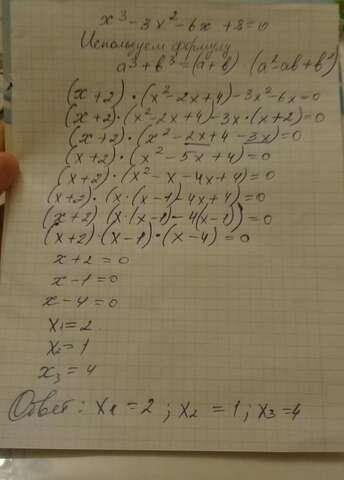 x³-3x²-6x+8=0
Используем формулу
a³+b³=(a+b) (a²-ab+b²)
(x+2)·(x²-2x+4)-3x²-6x=0
(x+2)·(x²-2x+4)-3x·(x+2)=0
(x+2)·(x²-2x+4-3x)=0
(x+2)·(x²-5x+4)=0
(x+2)·(x²-x-4x+4)=0
(x+2)·(x·(x-1)-4x+4)=0
(x+2)·(x·(x-1)-4(x-1))=0
(x+2)·(x-1)·(x-4)=0
x+2=0
x-1=0
x-4=0
x₁=2
x₂=1
x₃=4
Ответ: x₁=2; x₂=1; x₃=4